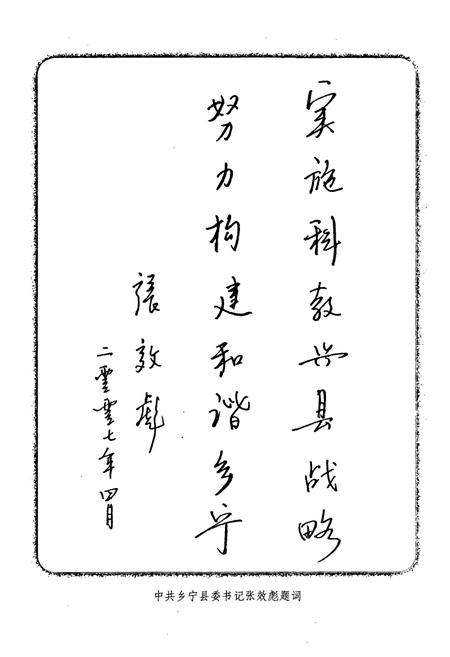 实施科教兴县战略
努力构建和谐乡宁
張效彪
二零零七年四月
中共乡宁县委书记张效彪题词